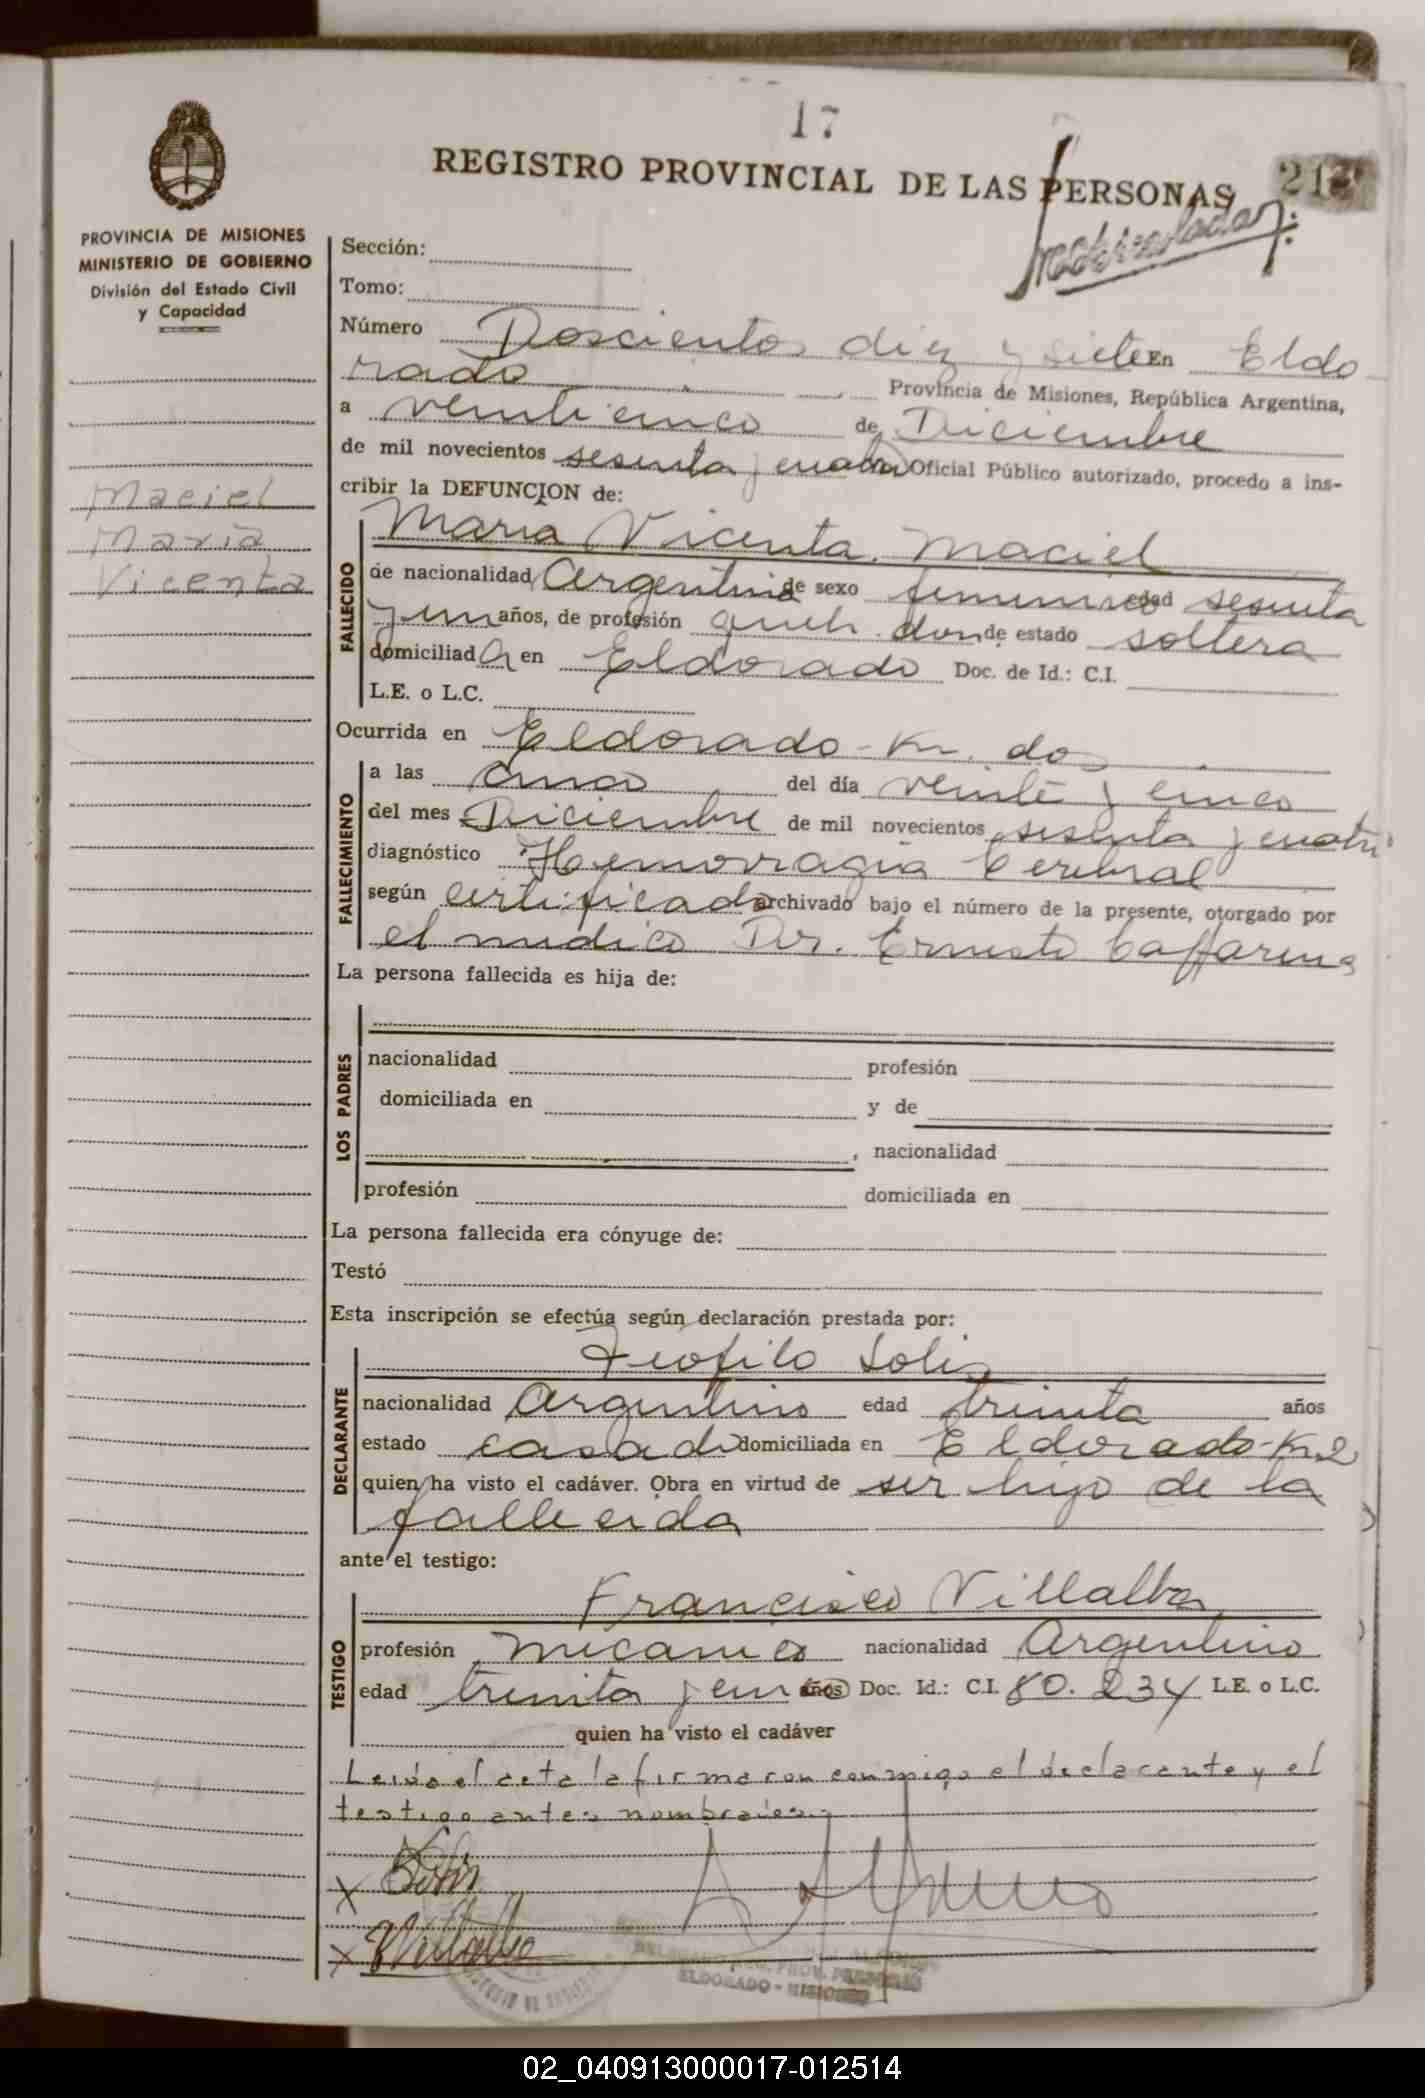 17
REGISTRO PROVINCIAL DE LAS PERSONAS
PROVINCIA DE MISIONES
MINISTERIO DE GOBIERNO
División del Estado Civil
y Capacidad
Maciel
Maria
Vicenta
Sección:
Tomo:
Número Doscientos diez y siete En Eldo
rado Provincia de Misiones, República Argentina,
a veinticinco de Diciembre
de mil novecientos sesenta y cuatro Oficial Público autorizado, procedo a ins-
cribir la DEFUNCION de:
FALLECIDO
Maria Vicenta Maciel
de nacionalidad Argentina de sexo femenino edad sesenta
y un años, de profesión queh. dom de estado soltera
domiciliada en Eldorado Doc. de Id.: C.I.
L.E. o L.C.
Ocurrida en Eldorado - Km. dos
FALLECIMIENTO
a las cinco del día veinte y cinco
del mes Diciembre de mil novecientos sesenta y cuatro
diagnóstico Hemorragia Cerebral
según certificado archivado bajo el número de la presente, otorgado por
el medico Dr. Ernesto
La persona fallecida es hija de:
LOS PADRES
nacionalidad profesión
domiciliada en y de
, nacionalidad
profesión domiciliada en
La persona fallecida era cónyuge de:
Testó
Esta inscripción se efectúa según declaración prestada por:
DECLARANTE
Teofilo Solis
nacionalidad Argentino edad treinta años
estado casado domiciliada en Eldorado - Km 2
quien ha visto el cadáver. Obra en virtud de ser hijo de la
fallecida
ante el testigo:
TESTIGO
Francisco Villalba
profesión mecanico nacionalidad Argentino
edad treinta y un años Doc. Id.: C.I. 80.234 L.E. o L.C.
quien ha visto el cadáver
Leida el acta la firmaron conmigo el declarante y el
testigo antes nombrados.-
X Solis
X Villalba
ELDORADO - MISIONES
02_040913000017-012514